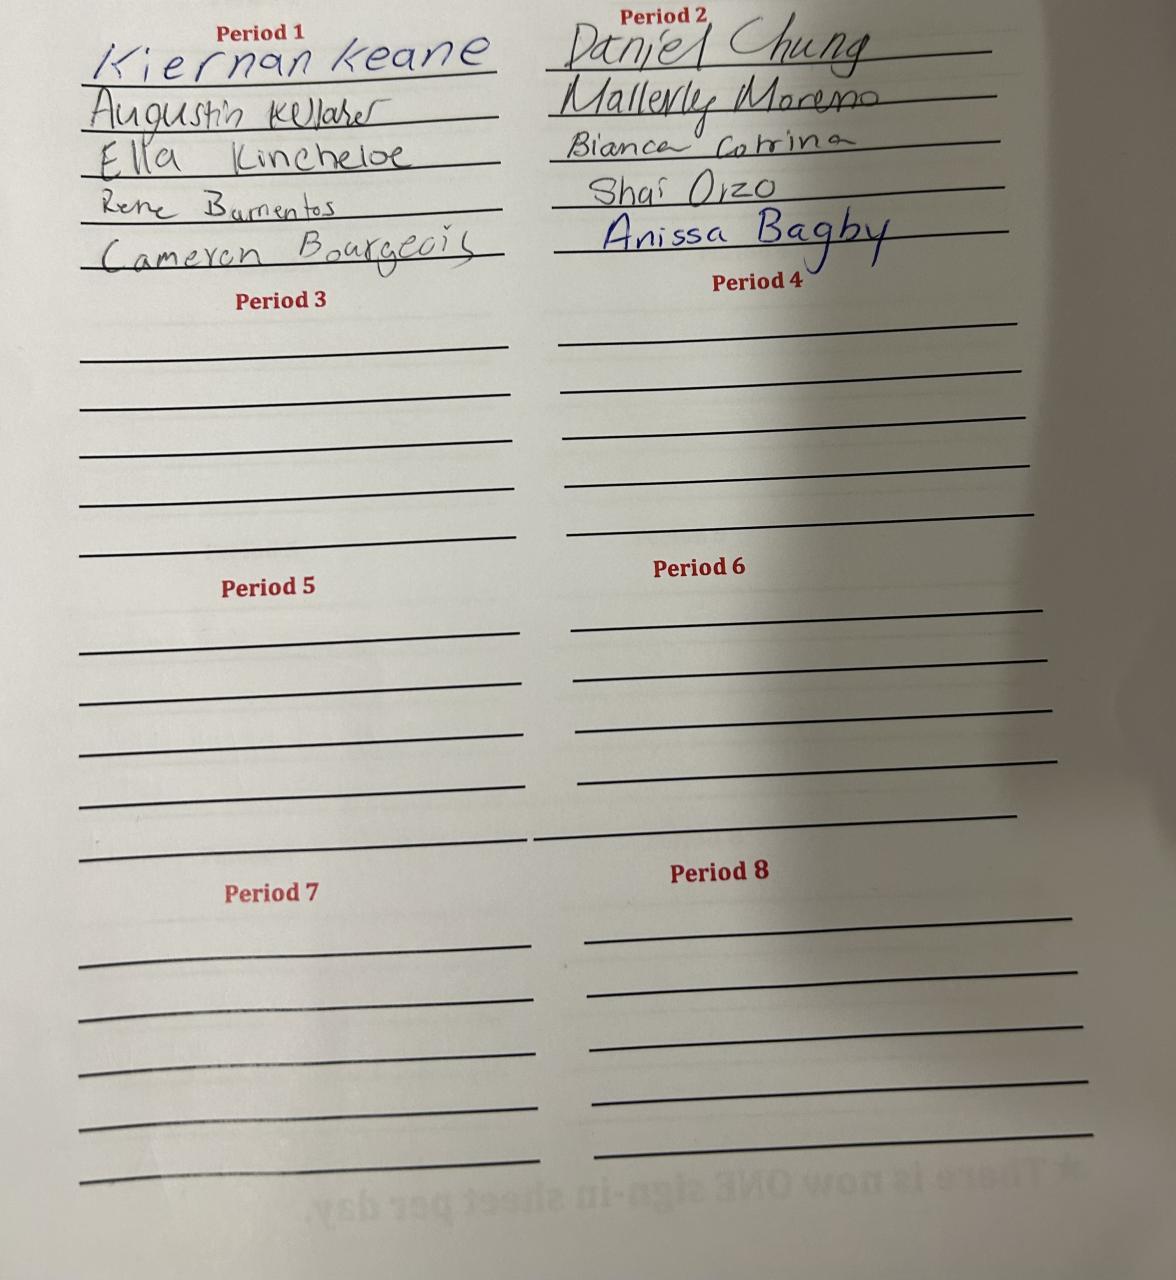 Period 1
Kiernan Keane
Augustin Kellaher
Ella Kincheloe
Rene Barrientos
Cameron Bourgeois
Period 2
Daniel Chung
Mallerly Moreno
Bianca Catrina
Shai Orzo
Anissa Bagby
Period 3
Period 4
Period 5
Period 6
Period 7
Period 8
*There is now ONE sign-in sheet per day.